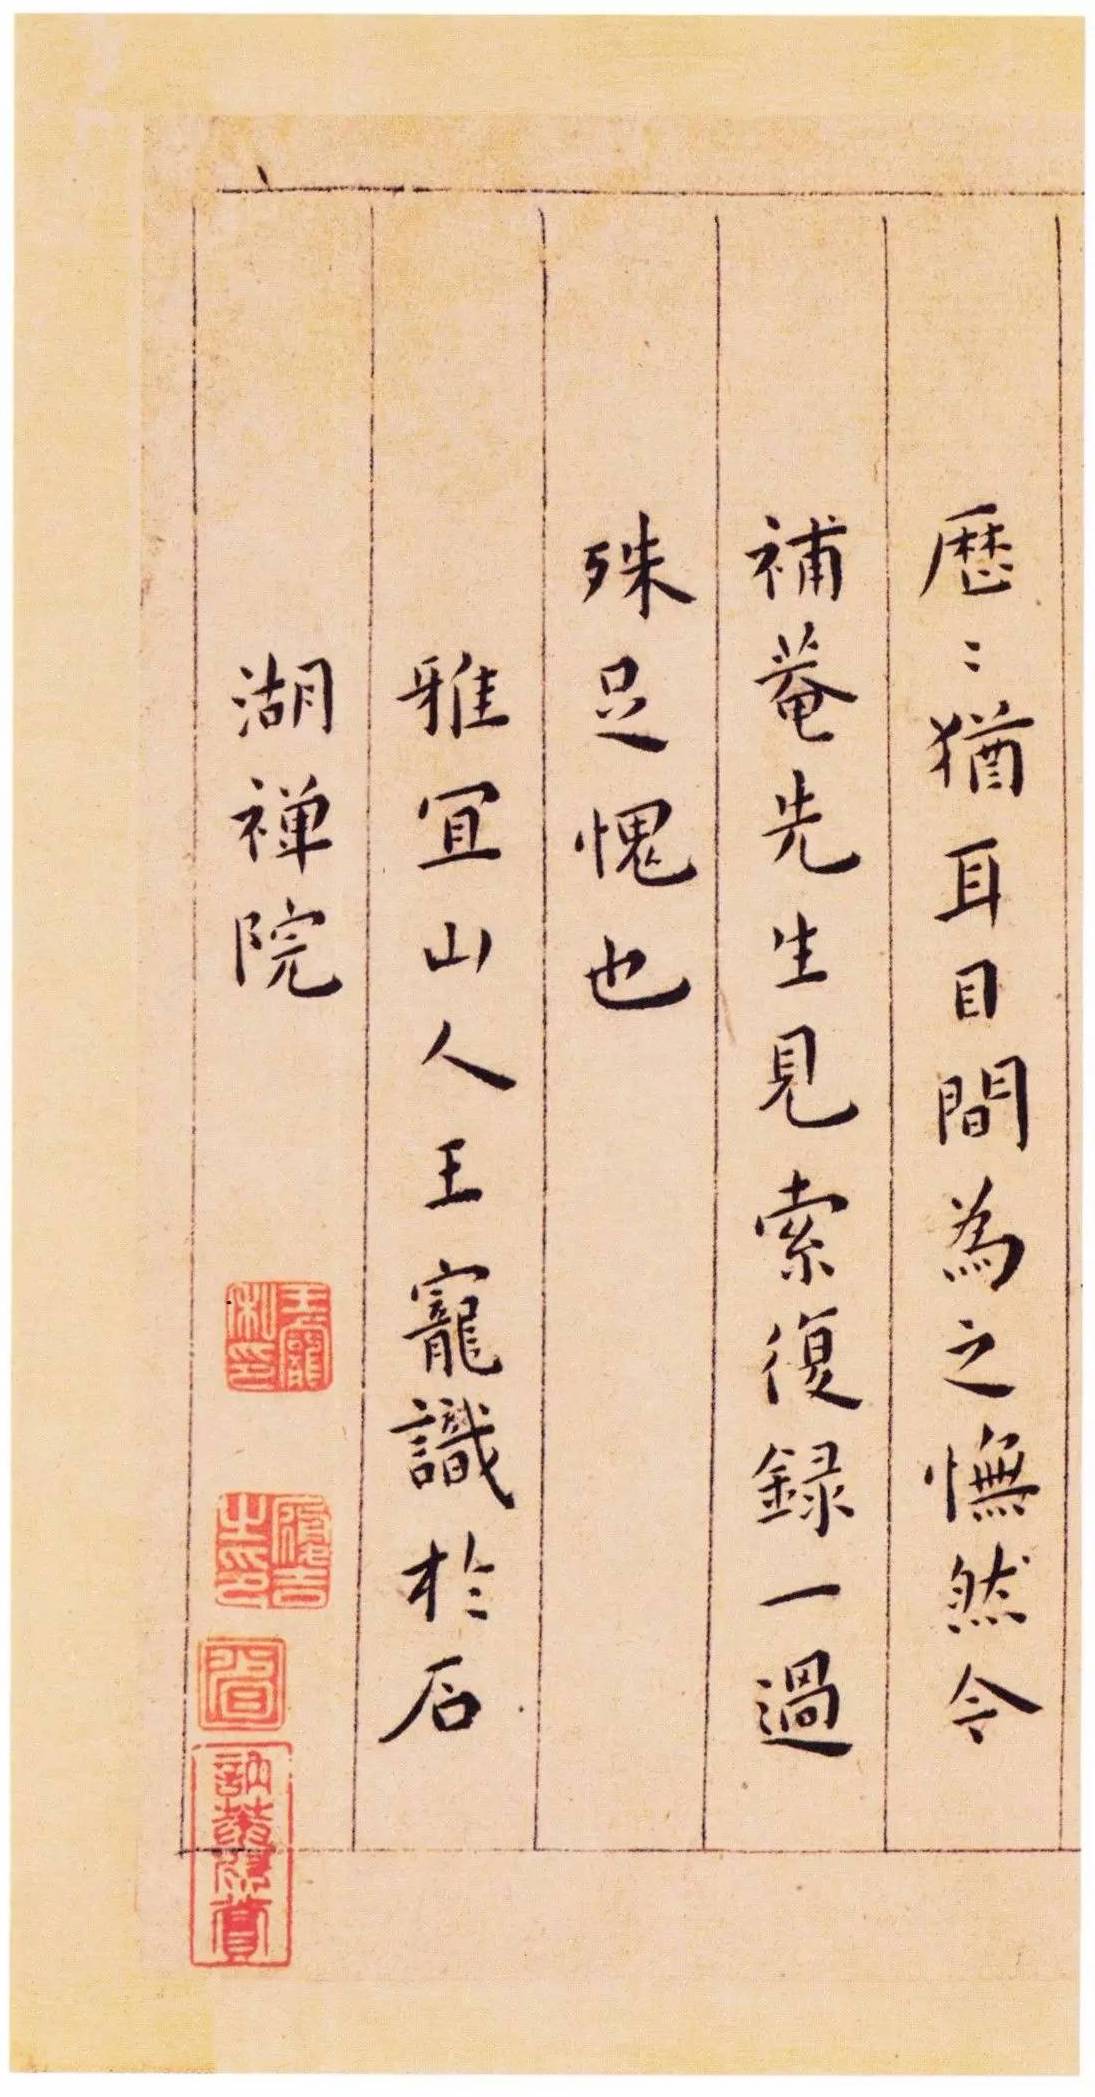 歷〻猶耳目間為之憮然令
補菴先生見索復録一過
殊足愧也
雅宜山人王寵識於石
湖禅院
王寵私印
履吉之印